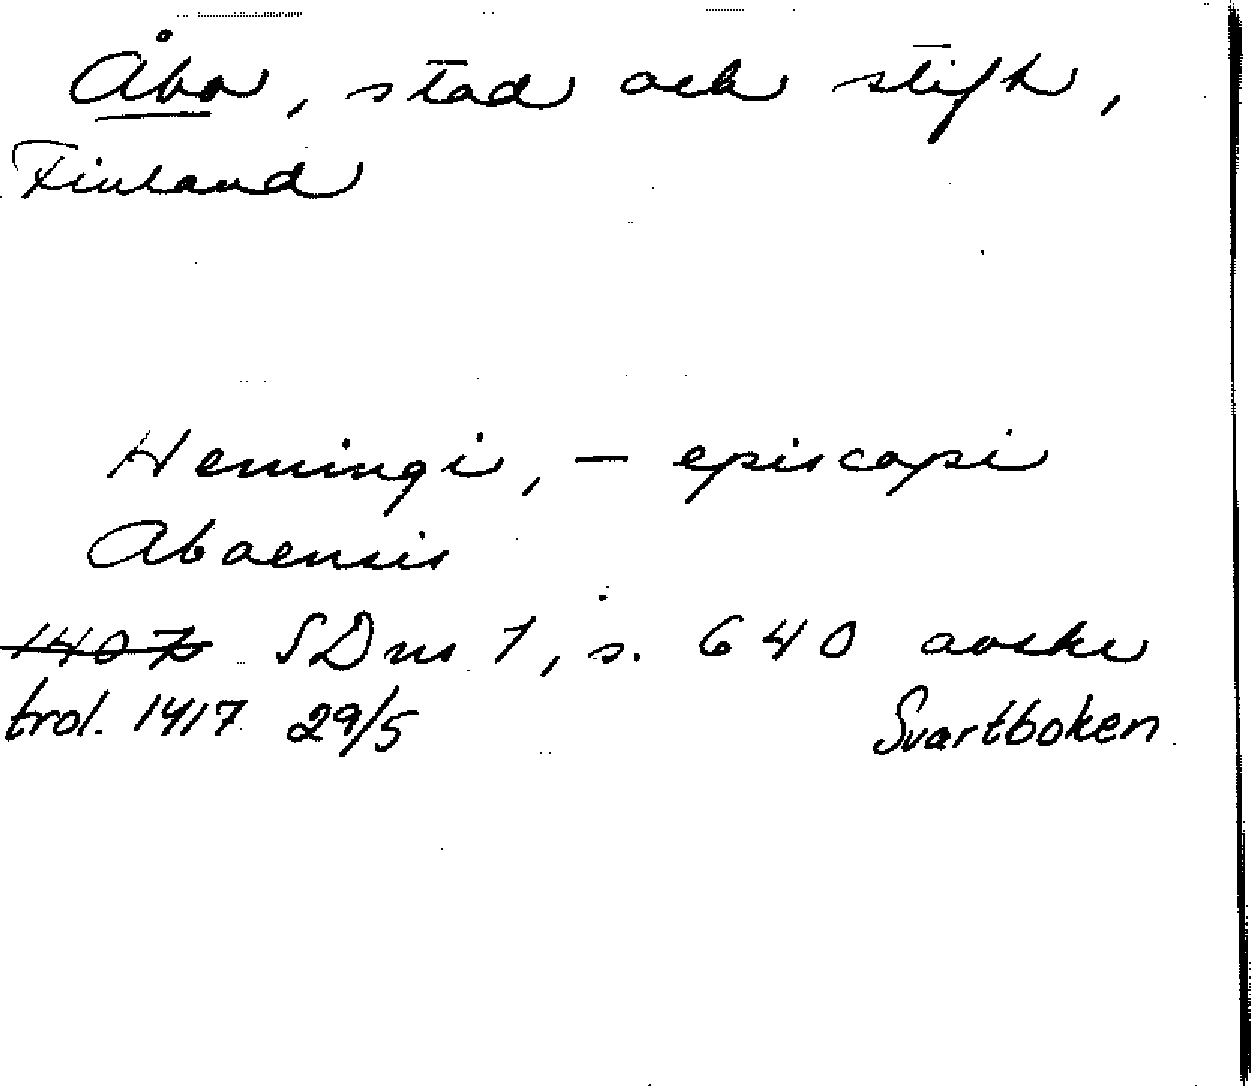 Åbo, stad och stift,
Finland
Hemingi, - episcopi
Aboensis
1407 SDns 1, s. 640 avskr
trol. 1417 29/5 Svartboken